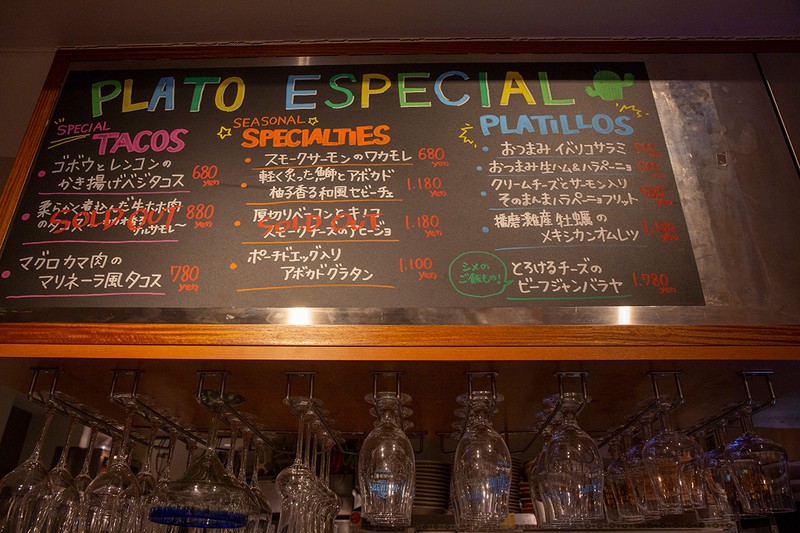 PLATO ESPECIAL
SPECIAL
TACOS
ゴボウとレンコンの
かき揚げベジタコス 680
yen
柔らかく煮込んだ牛ホホ肉
SOLD OUT 880
yen
マグロカマ肉の
マリネーラ風タコス 780
yen
SEASONAL
SPECIALTIES
スモークサーモンのワカモレ 680
yen
軽く炙った鰤とアボカド
柚子香る和風セビーチェ 1.180
yen
厚切りベーコンとキノコ
SOLD OUT
スモークチーズのアヒージョ 1.180
yen
ポーチドエッグ入り
アボカドグラタン 1.100
yen
PLATILLOS
おつまみイベリコサラミ
おつまみ生ハム&ハラペーニョ
クリームチーズとサーモン入り
そのまんまハラペーニョフリット
播磨灘産牡蠣の
メキシカンオムレツ
シメの
ご飯もの!
とろけるチーズの
ビーフジャンバラヤ 1.780
yen